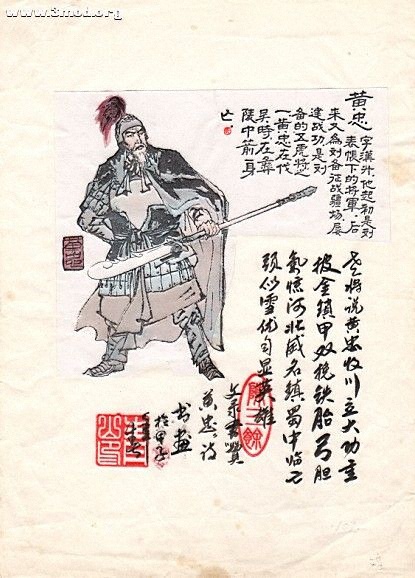 www.3mod.org
黄忠 字漢升他起初是刘
表帳下的将軍后
来又為刘备征战疆场屡
建战功是刘
备的五虎将之
一黄忠在代
吴時在彝
陵中箭身
亡
老将说黄忠收川立大功重
披金鎖甲双挽铁胎弓胆
氣惊河北威名鎮蜀中临亡
頭似雪优自显英雄
黄忠诗
书画
於甲子